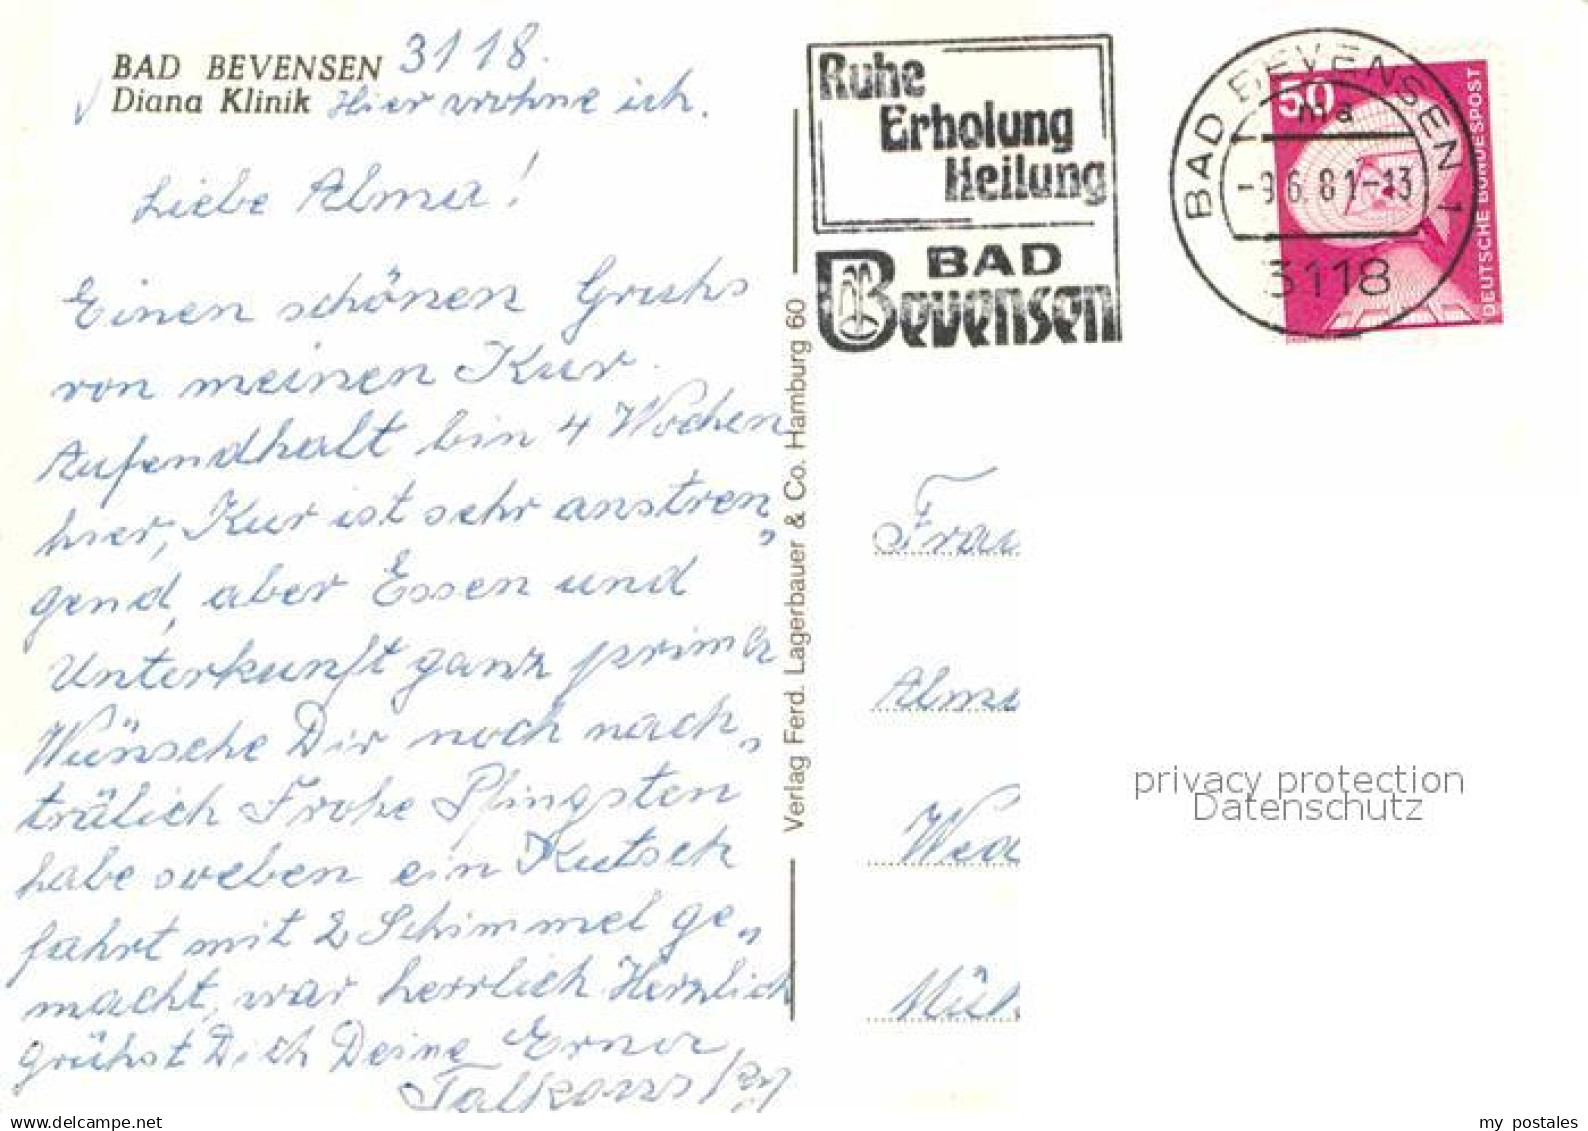 BAD BEVENSEN 3118.
Diana Klinik Hier wohne ich.
Liebe Alma!
Einen schönen Gruhs
von meinen Kur.
Aufendhalt bin 4 Wochen
hier, Kur ist sehr anstren„
gend, aber Essen und
Unterkunft ganz prima
Wünsche Dir noch nach„
trälich Frohe Pfingsten
habe soeben ein Kutsch
fahrt mit 2 Schimmel ge„
macht, war herrlich Herzlich
grühst Dich Deine Erna
Verlag Ferd. Lagerbauer & Co. Hamburg 60
Ruhe
Erholung
Heilung
BAD
Bevensen
BAD BEVENSEN 1
ma
-9.6.81-13
3118
50
DEUTSCHE BUNDESPOST
Frau
Alma
privacy protection
Datenschutz
my postales